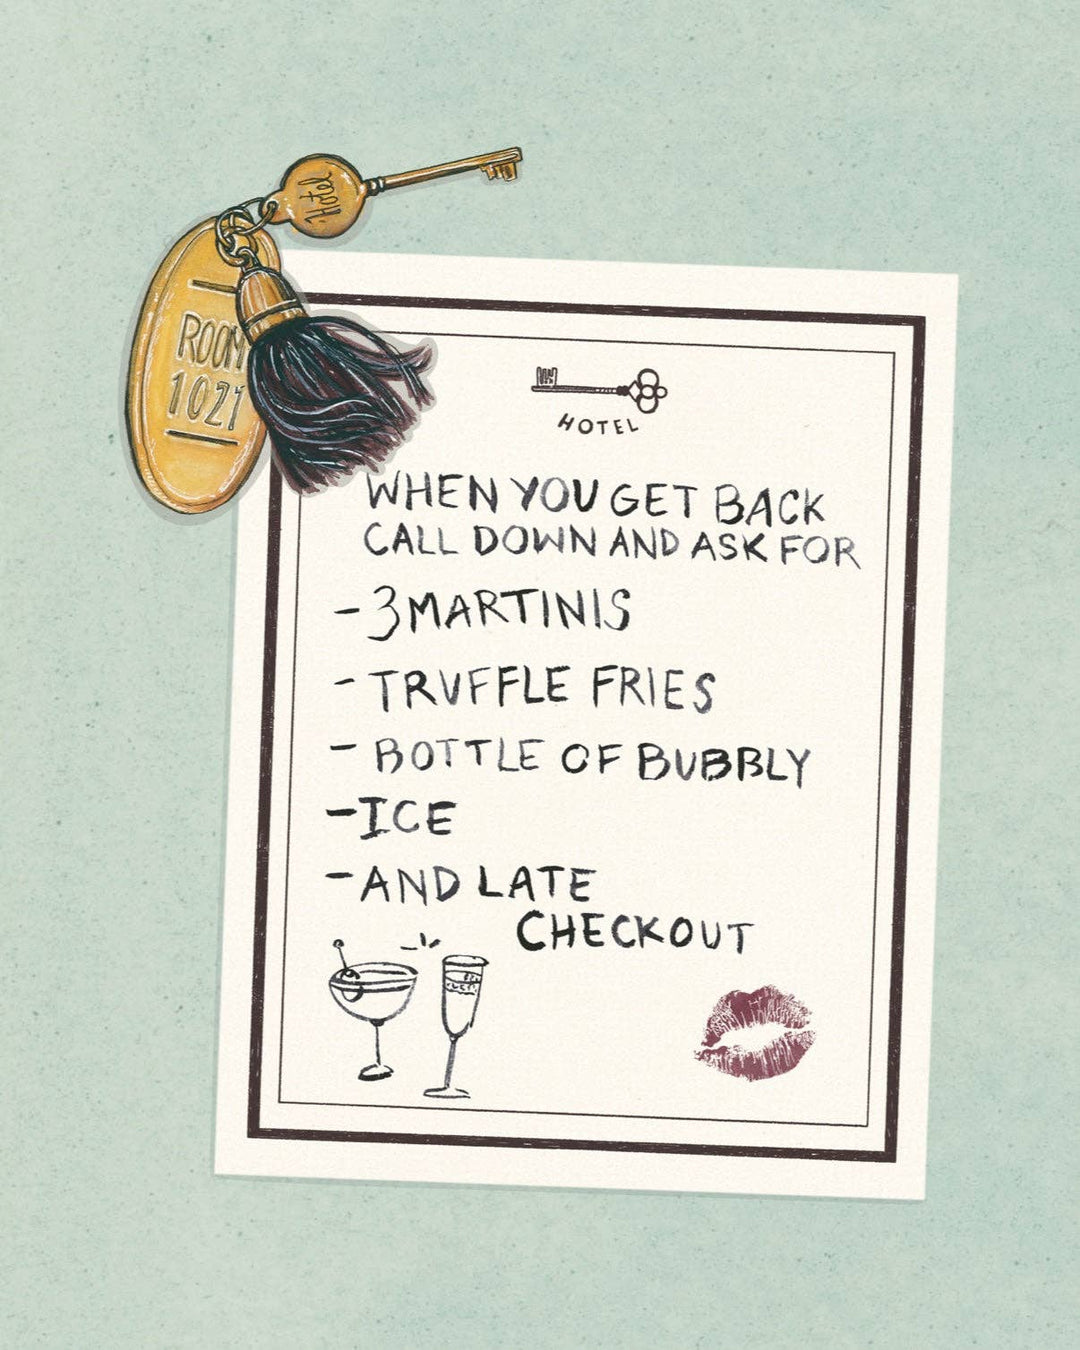 Hotel
ROOM
1021
HOTEL
WHEN YOU GET BACK
CALL DOWN AND ASK FOR
- 3 MARTINIS
- TRUFFLE FRIES
- BOTTLE OF BUBBLY
- ICE
- AND LATE
CHECKOUT